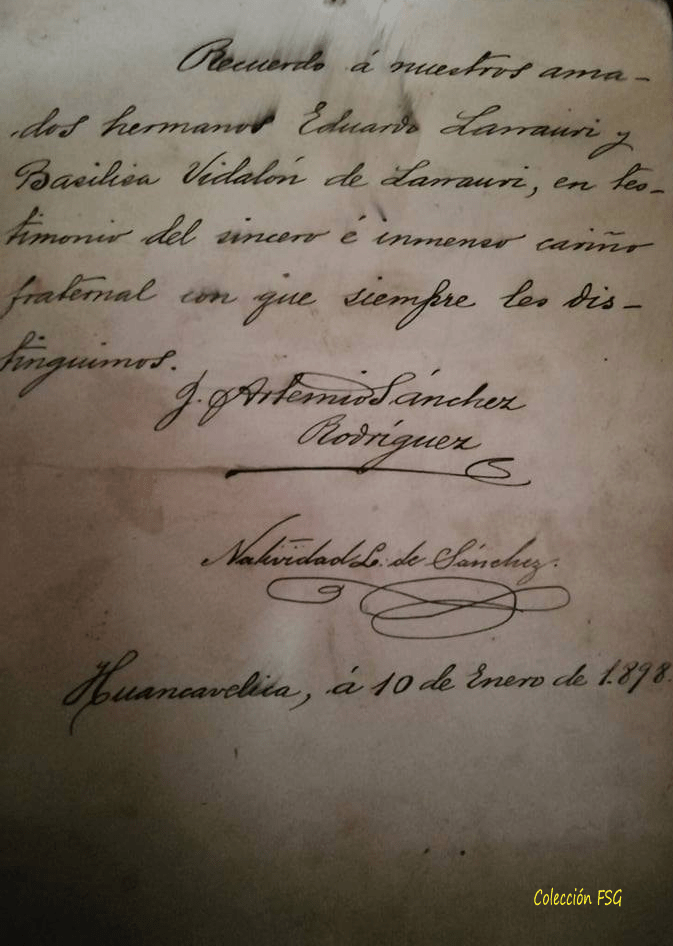 Recuerdo á nuestros ama-
dos hermanos Eduardo Larrauri y
Basilisa Vidalón de Larrauri, en tes-
timonio del sincero é inmenso cariño
fraternal con que siempre les dis-
tinguimos.
J. Artemio Sánchez
Rodríguez
Natividad L. de Sánchez.
Huancavelica, á 10 de Enero de 1.898.
Colección FSG